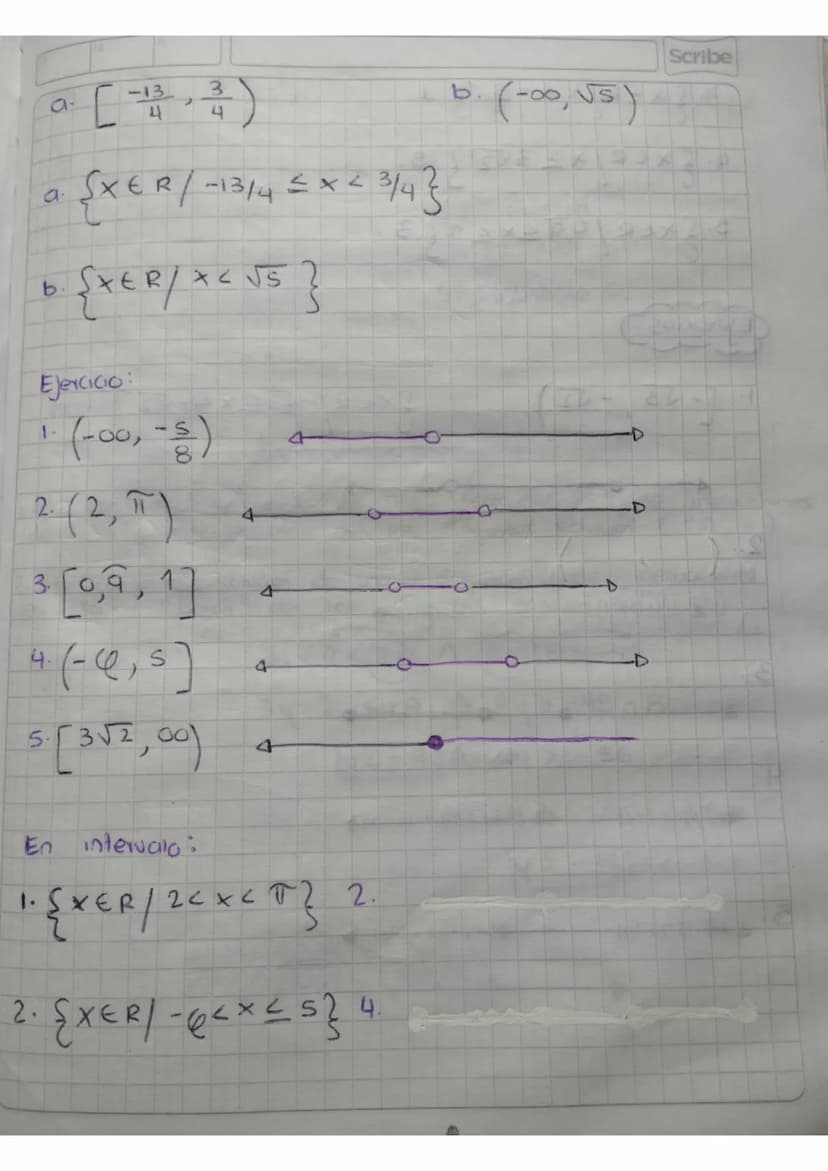 Scribe
a. [-13/4, 3/4) b. (-∞, √5)
a. {x ∈ R / -13/4 ≤ x < 3/4}
b. {x ∈ R / x < √5}
Ejercicio:
1. (-∞, -5/8)
2. (2, π)
3. [0,9̄, 1]
4. (-φ, 5]
5. [3√2, ∞)
En intervalo:
1. {x ∈ R / 2 < x < π} 2.
2. {x ∈ R / -φ < x ≤ 5} 4.